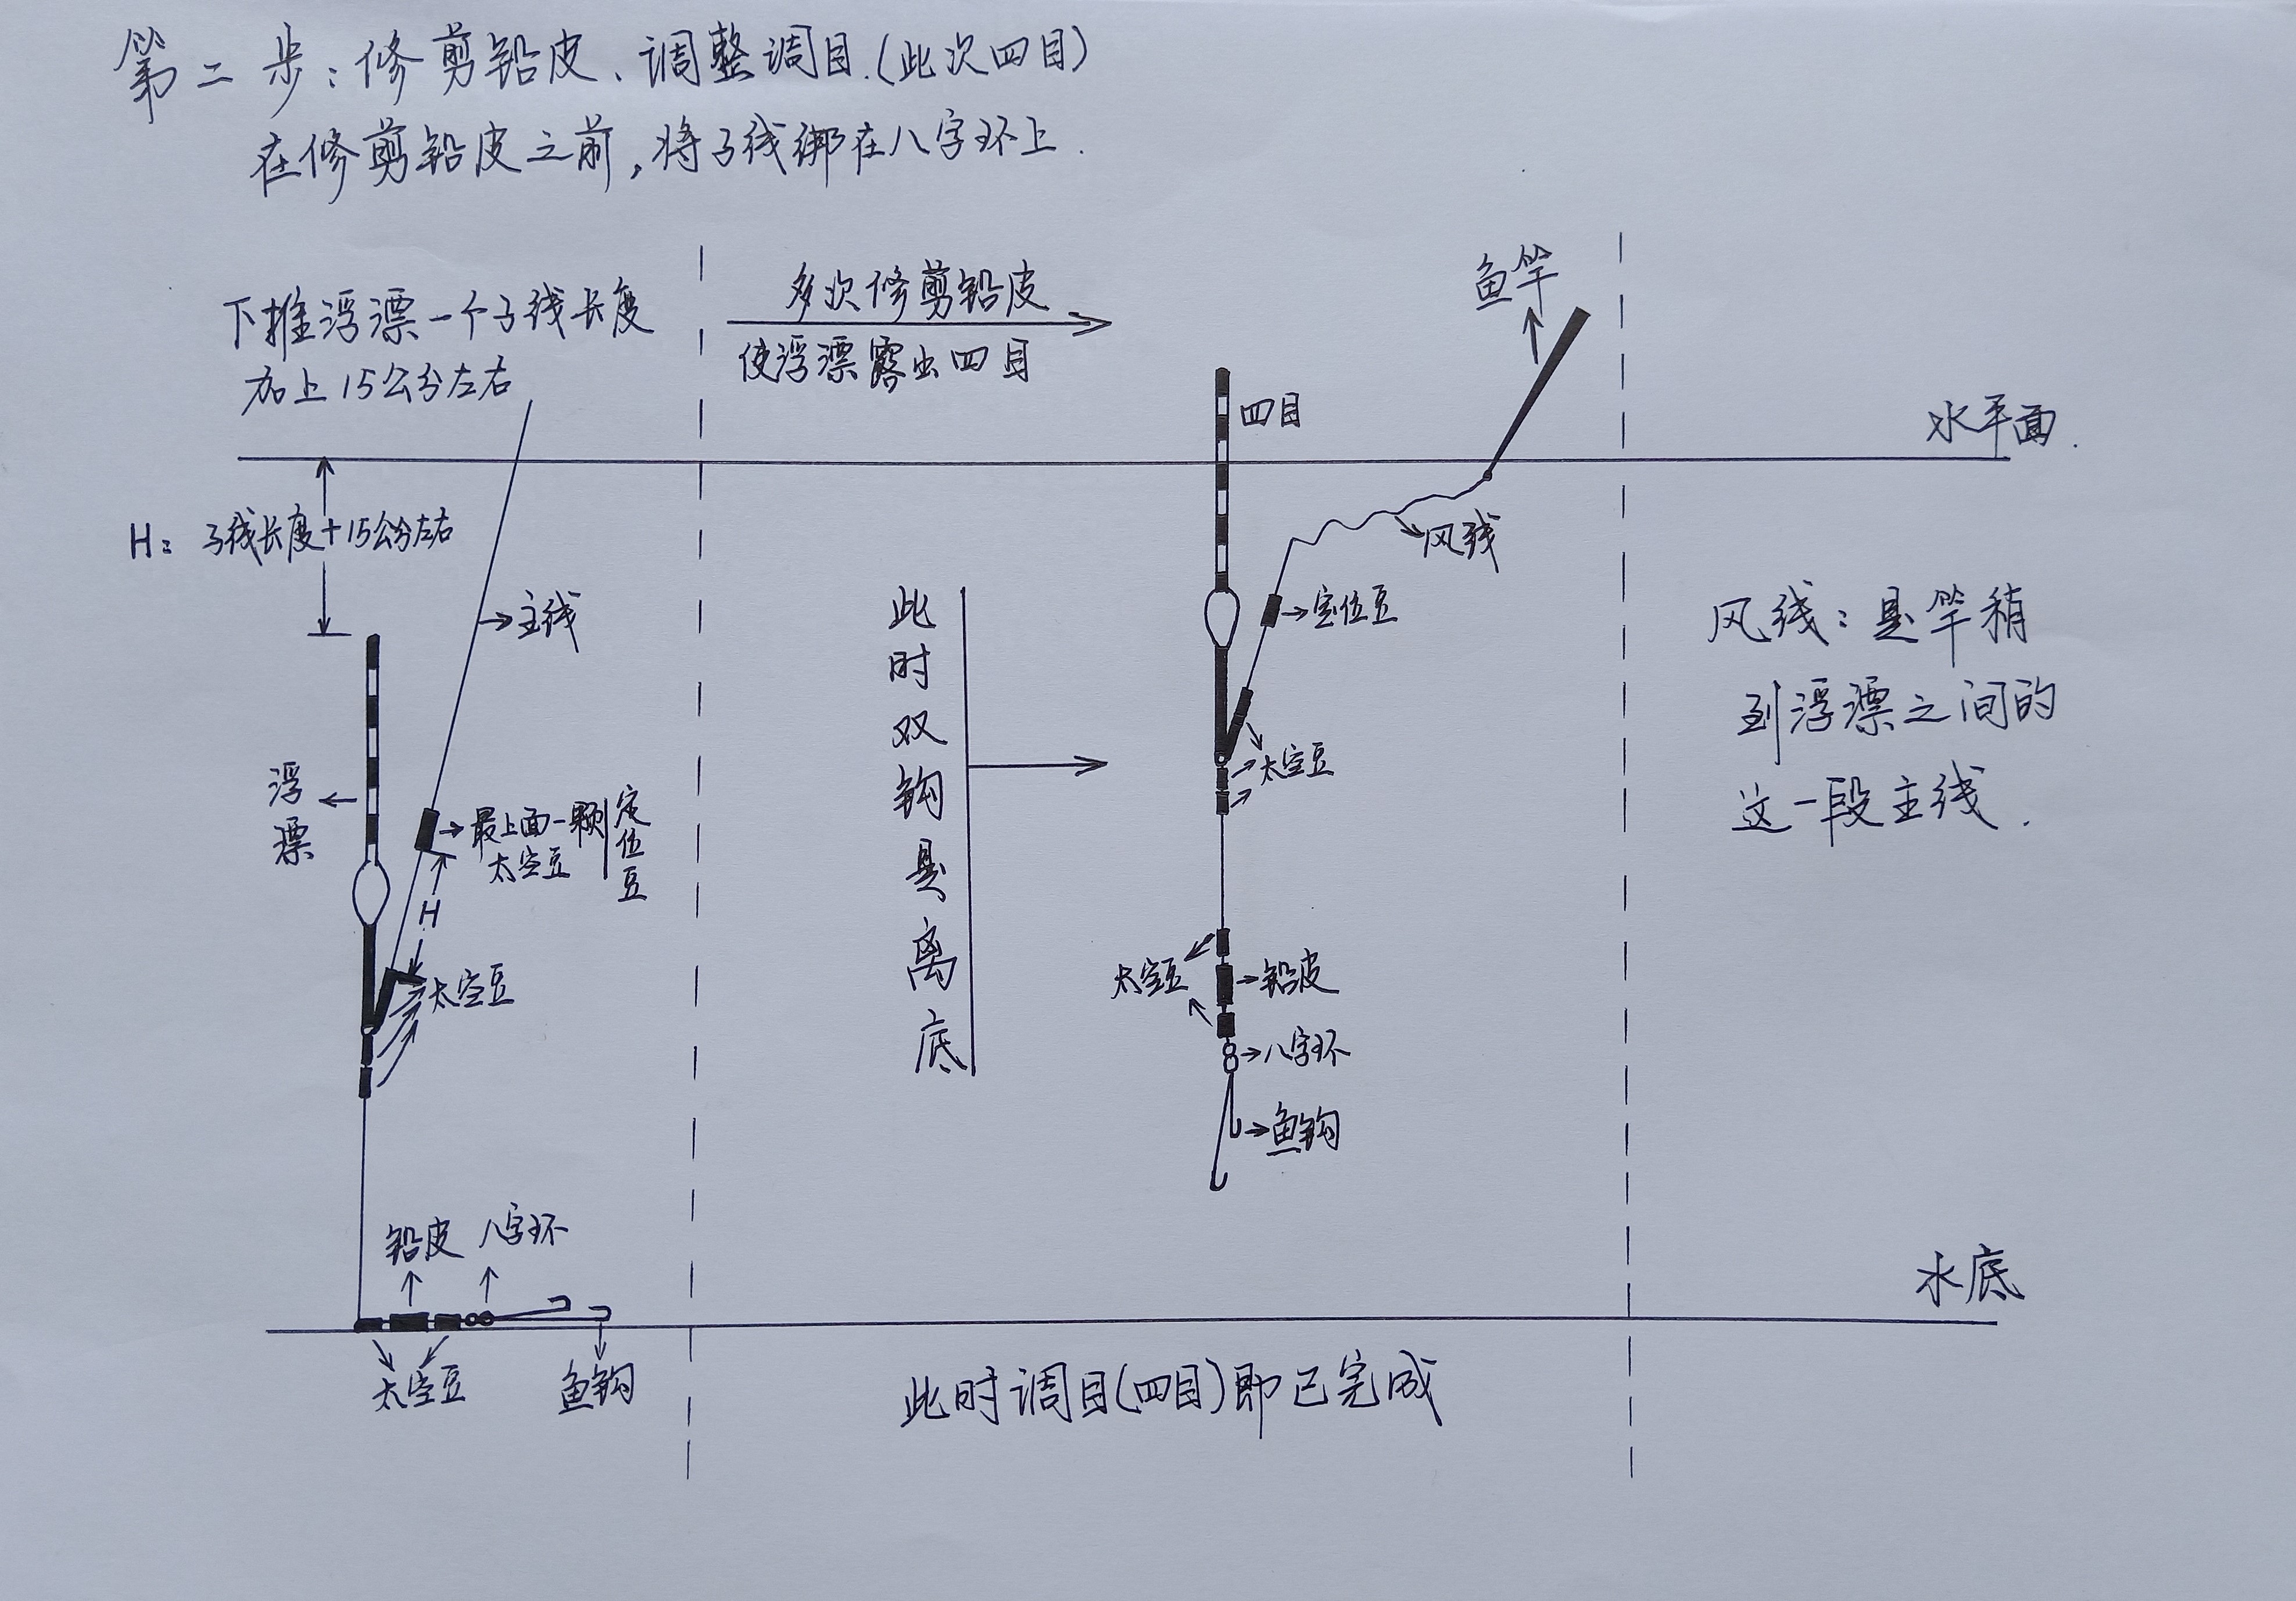 第二步:修剪铅皮、调整调目.(此次四目)
在修剪铅皮之前,将子线绑在八字环上.
下推浮漂一个子线长度
加上15公分左右
多次修剪铅皮
使浮漂露出四目
鱼竿
四目
水平面.
H: 子线长度+15公分左右
主线
风线
定位豆
浮漂
最上面一颗
太空豆
定位豆
H
太空豆
此时双钩悬离底
太空豆
太空豆
铅皮
八字环
鱼钩
风线:是竿稍
到浮漂之间的
这一段主线.
铅皮
八字环
太空豆
鱼钩
水底
此时调目(四目)即已完成